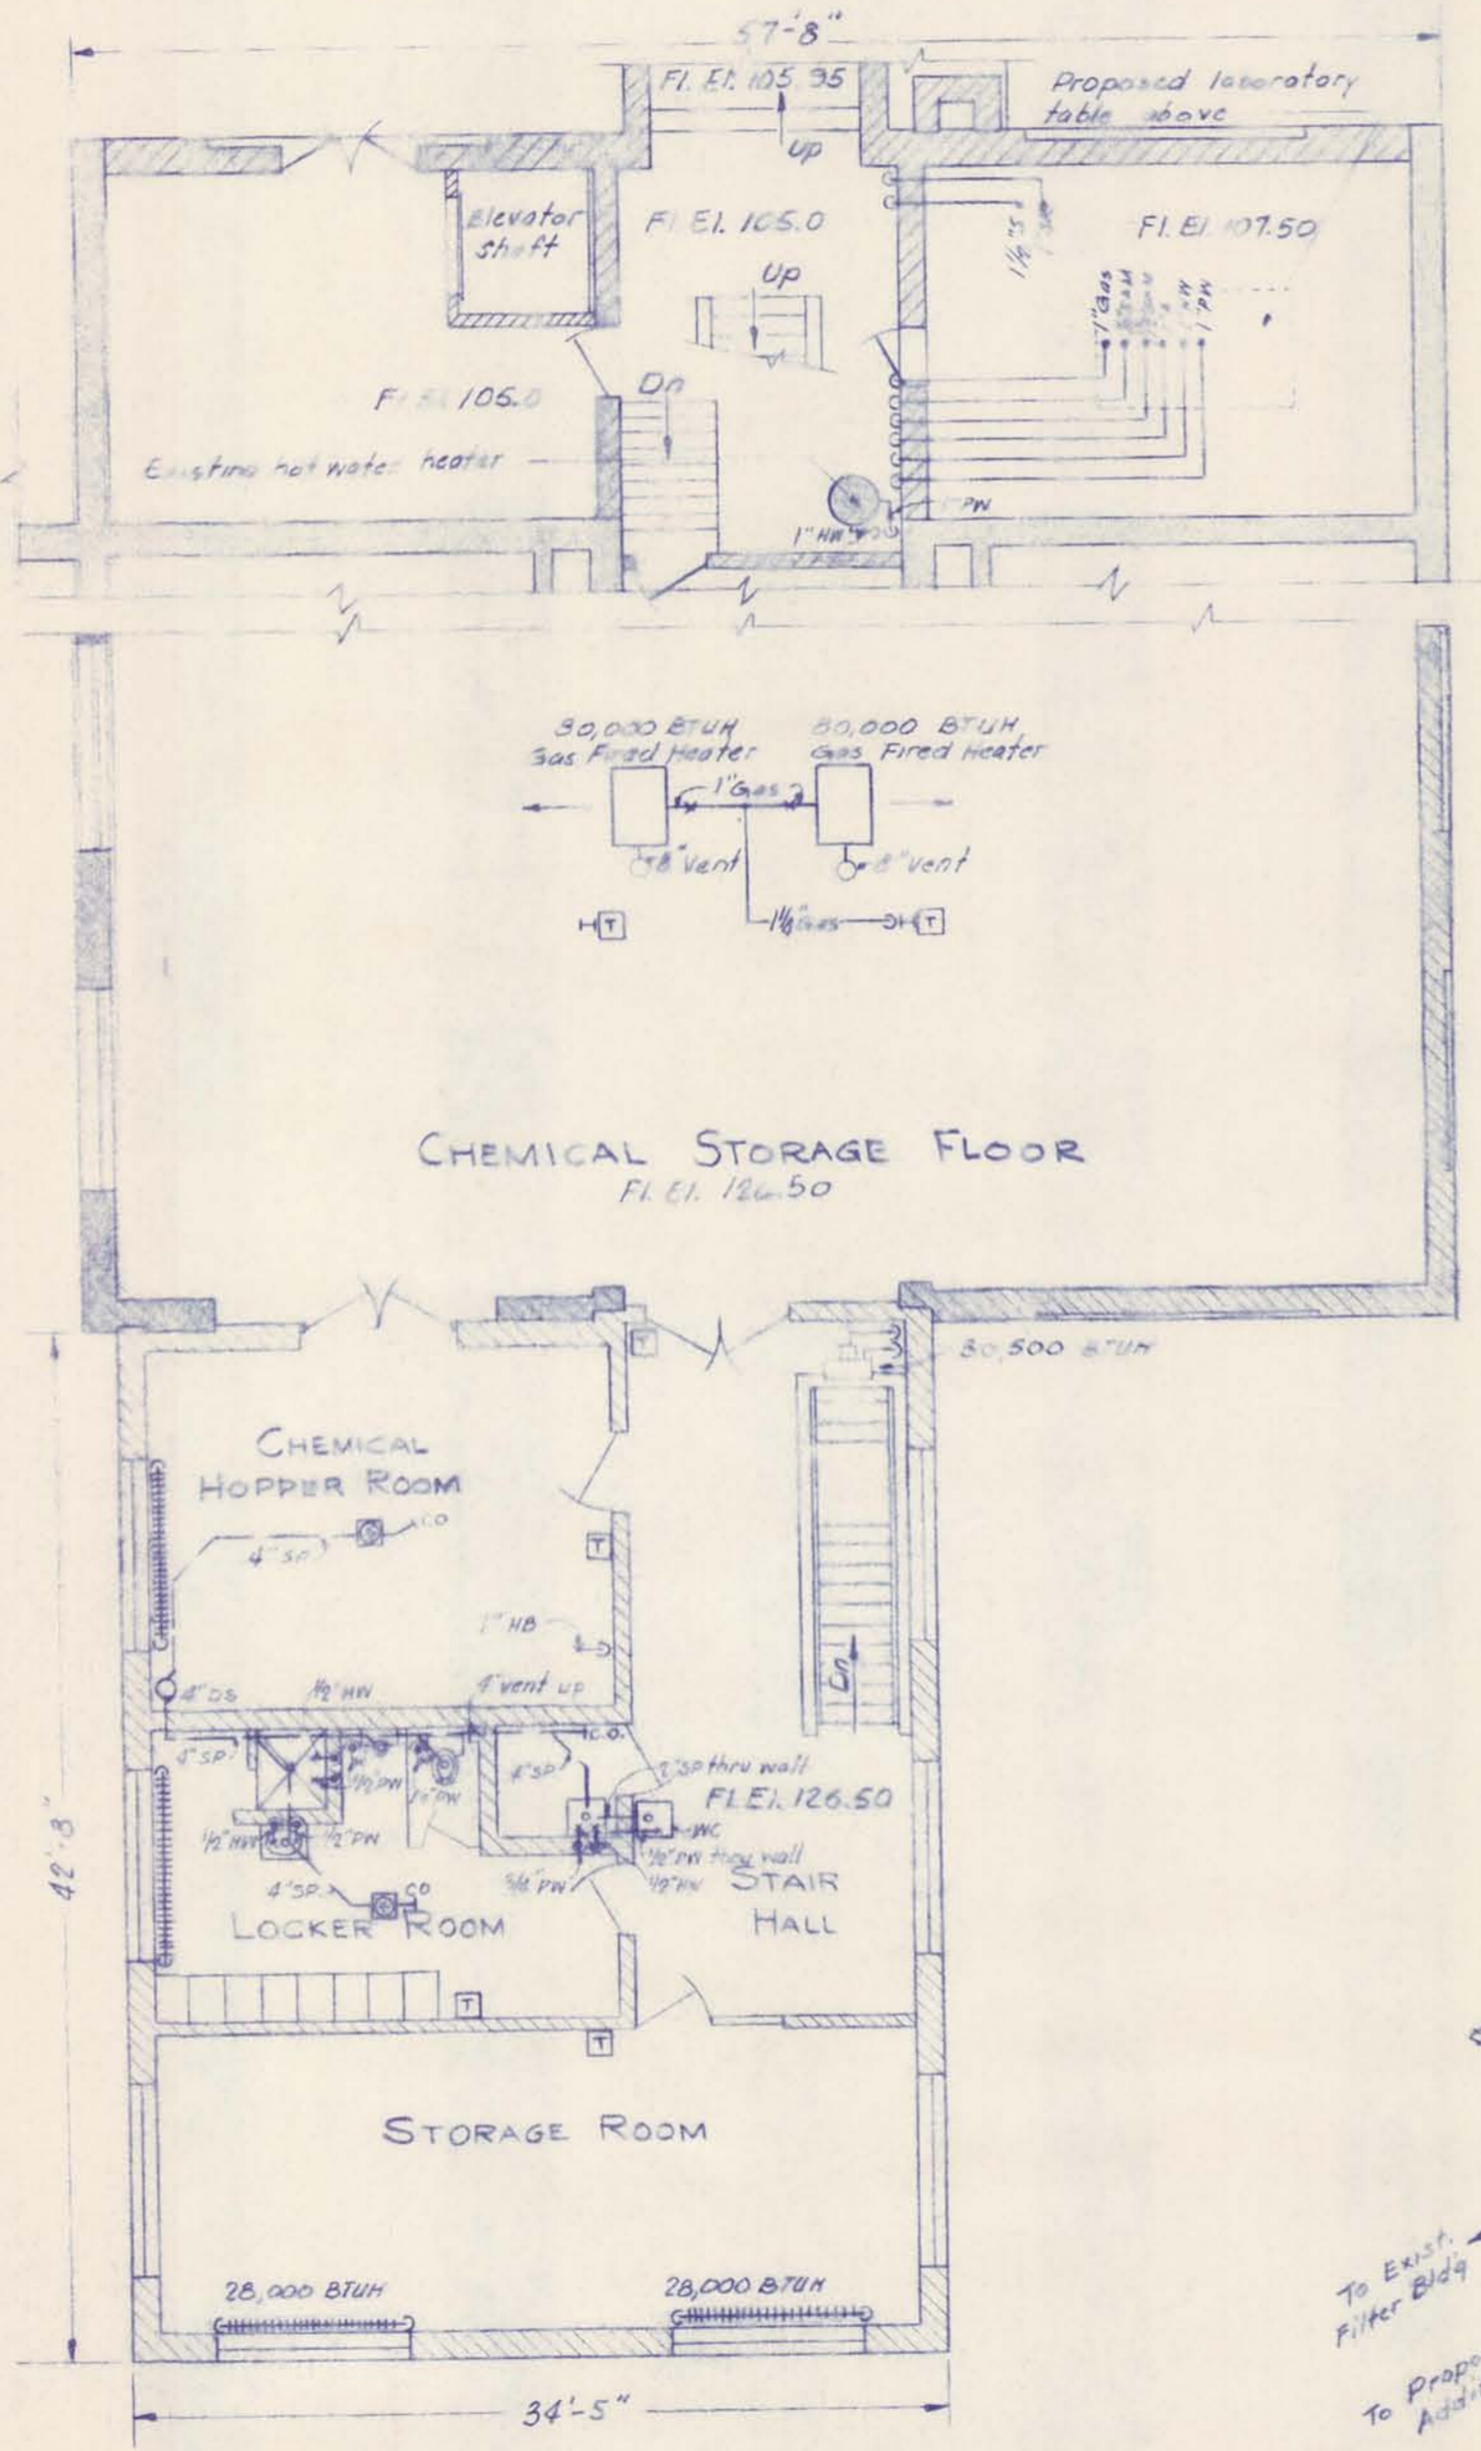 57'-8"
Fl. El. 105.95
Proposed laboratory
table above
up
Elevator
shaft
Fl El. 105.0
Fl. El. 107.50
up
1"Gas
1"PW
Dn
105.0
Existing hot water heater
PW
1"HW
80,000 BTUH
Gas Fired Heater
80,000 BTUH
Gas Fired Heater
1"Gas
8"Vent
8"Vent
T
Gas
T
CHEMICAL STORAGE FLOOR
Fl. El. 126.50
T
BTUH
CHEMICAL
HOPPER ROOM
CO
4"SP
T
1"HB
Dn
4"DS
1/2"HW
4"vent up
C.O.
4"SP
4"SP
1/2"PW
2"SP thru wall
Fl. El. 126.50
1/2"HW
1/2"PW
WC
1/2"PW thru wall
3/4"PW
1/2"HW
STAIR
HALL
4"SP
CO
LOCKER ROOM
42'-8"
T
T
STORAGE ROOM
28,000 BTUH
28,000 BTUH
34'-5"
To Exist.
Filter Bldg
To